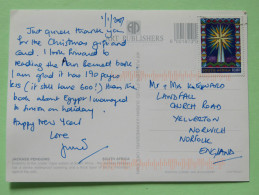 1/1/2009
Just quick thank you
for the Christmas gift and
card. I look forward to
reading the Ann Bennett book.
I am glad it has 190 pages
less (it still have 600!) than the
book about Egypt I managed
to finish on holiday.
Happy New Year!
Love
ART PUBLISHERS
Mr & Mrs Hayward
LANDFALL
CHURCH ROAD
YELVERTON
NORWICH
NORFOLK
ENGLAND
SOUTH AFRICA